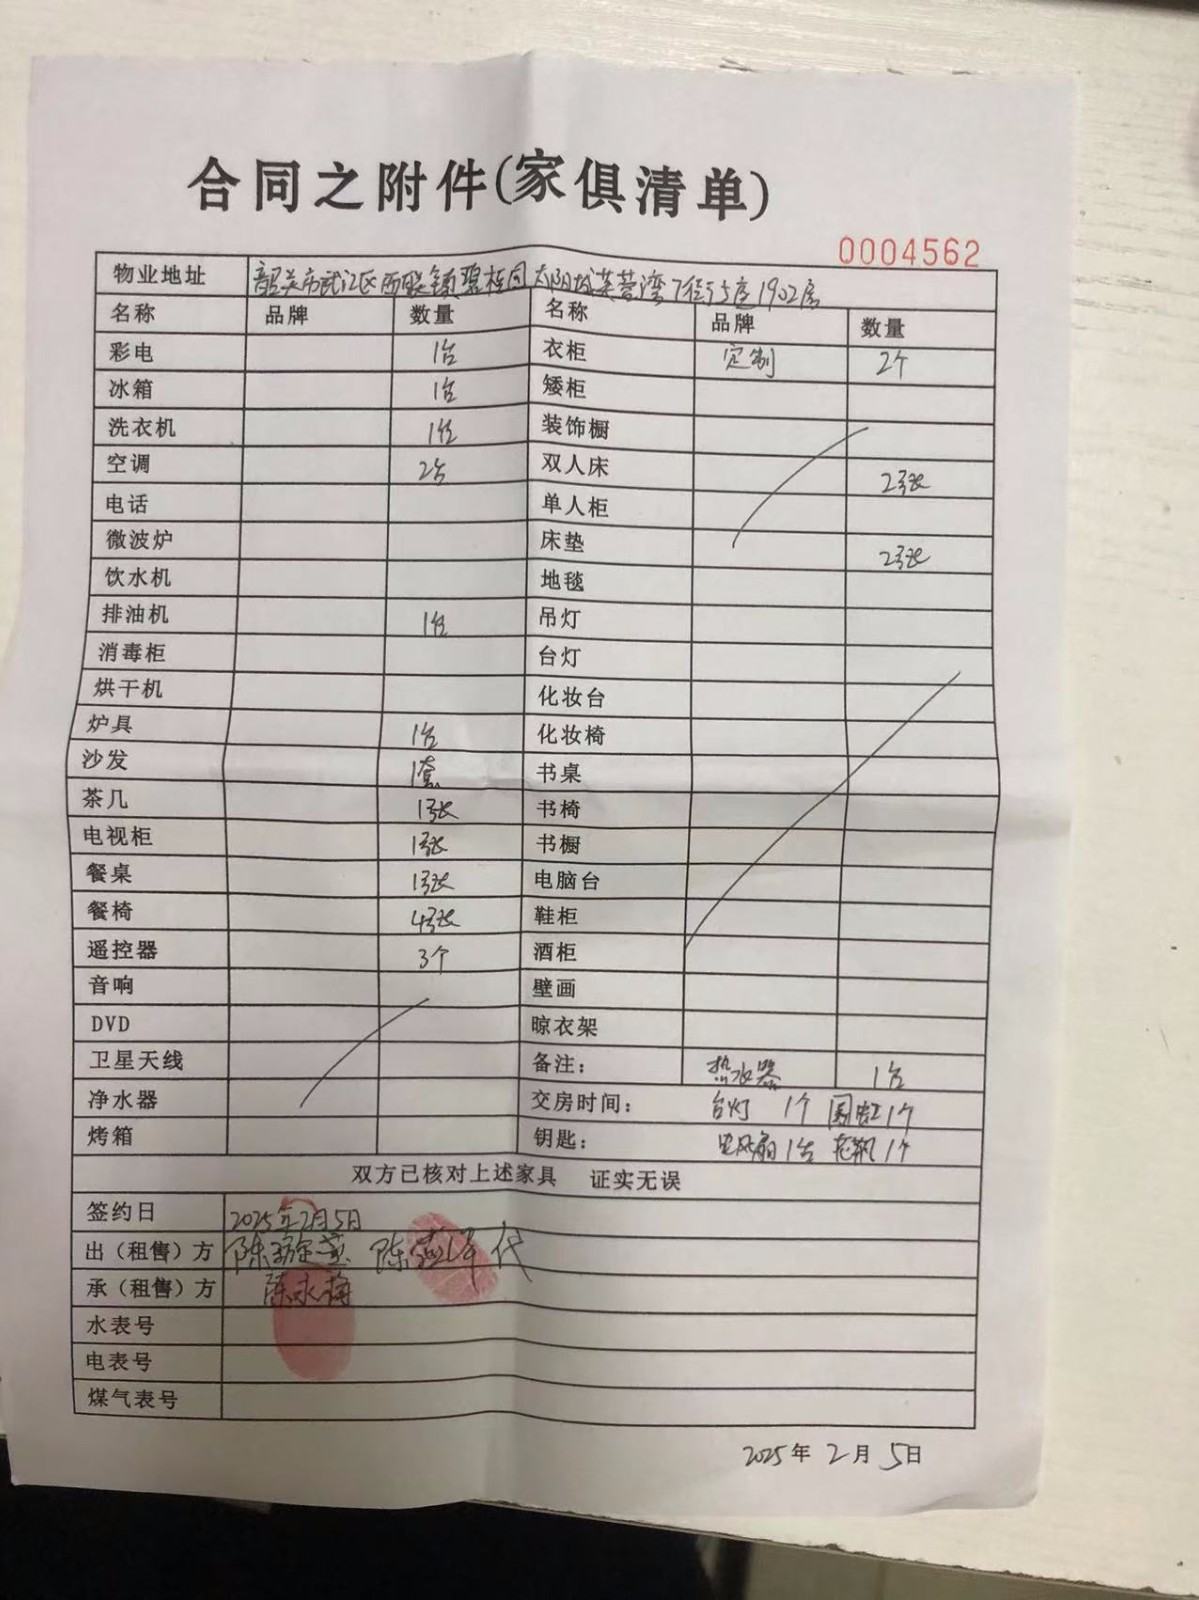 合同之附件(家俱清单)
0004562
物业地址 韶关市武江区西联镇碧桂园太阳城芙蓉湾7街5座1902房
名称 品牌 数量 名称 品牌 数量
彩电 1台 衣柜 定制 2个
冰箱 1台 矮柜
洗衣机 1台 装饰橱
空调 2台 双人床 2张
电话 单人柜
微波炉 床垫 2张
饮水机 地毯
排油机 1台 吊灯
消毒柜 台灯
烘干机 化妆台
炉具 1台 化妆椅
沙发 1套 书桌
茶几 1张 书椅
电视柜 1张 书橱
餐桌 1张 电脑台
餐椅 4张 鞋柜
遥控器 3个 酒柜
音响 壁画
DVD 晾衣架
卫星天线 备注: 热水器 1台
净水器 交房时间: 台灯 1个 1个
烤箱 钥匙: 电风扇1台 花瓶1个
双方已核对上述家具 证实无误
签约日 2025年2月5日
出(租售)方 陈 陈 代
承(租售)方 陈水梅
水表号
电表号
煤气表号
2025年2月5日